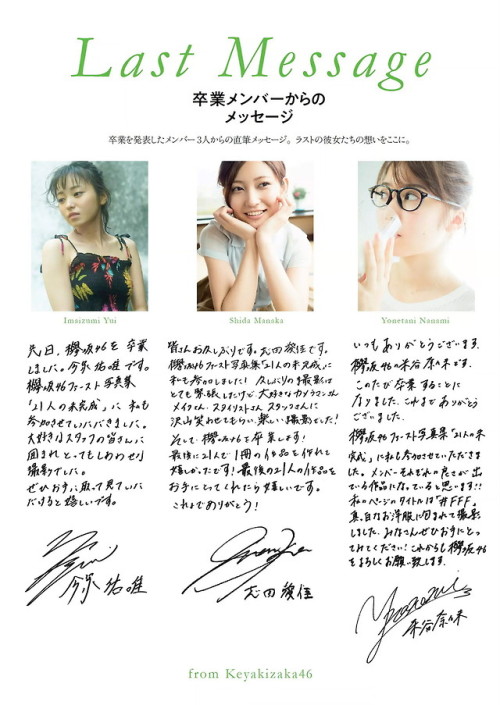 Last Message
卒業メンバーからの
メッセージ
卒業を発表したメンバー3人からの直筆メッセージ。ラストの彼女たちの想いをここに。
Imaizumi Yui
Shida Manaka
Yonetani Nanami
先日、欅坂46を卒業
しました。今泉佑唯です。
欅坂46ファースト写真集
「21人の未完成」に私も
参加させていただきました。
大好きなスタッフの皆さんに
囲まれとってもしあわせな
撮影でした。
ぜひお手に取って見ていた
だけると嬉しいです。
今泉佑唯
皆さんお久しぶりです。志田愛佳です。
欅坂46ファースト写真集「21人の未完成」に
私も参加しました！久しぶりの撮影は
とても緊張したけど大好きなカメラマンさん
メイクさん、スタイリストさん、スタッフさんに
沢山笑わせてもらい、楽しい撮影でした！
そして、欅坂46を卒業します！
最後に21人で1冊の作品を作れて
嬉しかったです！最後の21人の作品を
お手にとってくれたら嬉しいです。
これまでありがとう！
志田愛佳
いつもありがとうございます。
欅坂46の米谷奈々未です。
このたび卒業することに
なりました。これまでありがとう
ございました。
欅坂46ファースト写真集「21人の未
完成」に私も参加させていただきま
した。メンバーそれぞれの良さが出
ている作品になっていると思います!!
私のページのタイトルは「#FFF」。
真っ白なお洋服に包まれて撮影
しました。みなさんぜひお手にとっ
てみてください！これからも欅坂46
をよろしくお願い致します。
米谷奈々未
from Keyakizaka46